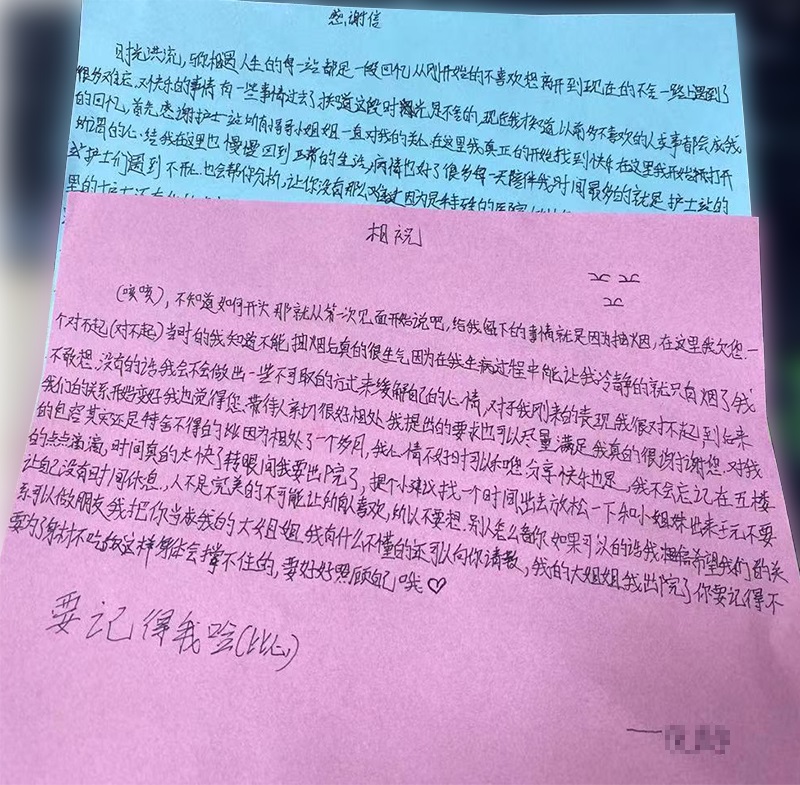 感谢信
时光洪流，与你相遇人生的每一站都是一段回忆从刚开始的不喜欢想离开到现在的不舍一路上遇到了
很多难忘、对快乐的事情有一些事情过去了 我知道这段时光是不舍的，现在我才知道，以前多不喜欢的人或事都会成我
的回忆，首先感谢护士站所有小哥哥小姐姐一直对我的关心在这里我真正的开始找到快乐在这里我开始新打开
心 给我在这里也慢慢回到正常的生活，病情也好了很多每一天陪伴我时间最多的就是护士站的
护士们遇到不开心也会帮你分析，让你没有那么难过因为是特殊的医院
相祝
（咳咳），不知道如何开头那就从第一次见面开始说吧，给我留下的事情就是因为抽烟，在这里我欠您一
个对不起（对不起）当时的我知道不能抽烟后真的很生气因为在我生病过程中能让我冷静的就只有烟了我
不敢想，没有的话我会不会做出一些不可取的方式来缓解自己的心情，对于我刚来的表现我很对不起到后来
我们的关系开始变好我也觉得您、带待人亲切很好相处我提出的要求也可以尽量满足我真的很谢谢您、对我
的包容其实还是特舍不得的 因为相处了一个多月，我心情不好时可以和您分享快乐也是，我不会忘记在五楼
的点点滴滴，时间真的太快了转眼间我要出院了，提个小建议找一个时间出去放松一下和小姐妹出来玩不要
让自己没有时间休息，人不是完美的不可能让所有人喜欢，所以不要想，别人怎么看你如果可以的话我相信希望我们的关
系可以做朋友我把你当成我的大姐姐，我有什么不懂的还可以向你请教，我的大姐姐我出院了你要记得不
要为了身材不吃饭这样身体会撑不住的，要好好照顾自己哦♡
要记得我哈(比心)